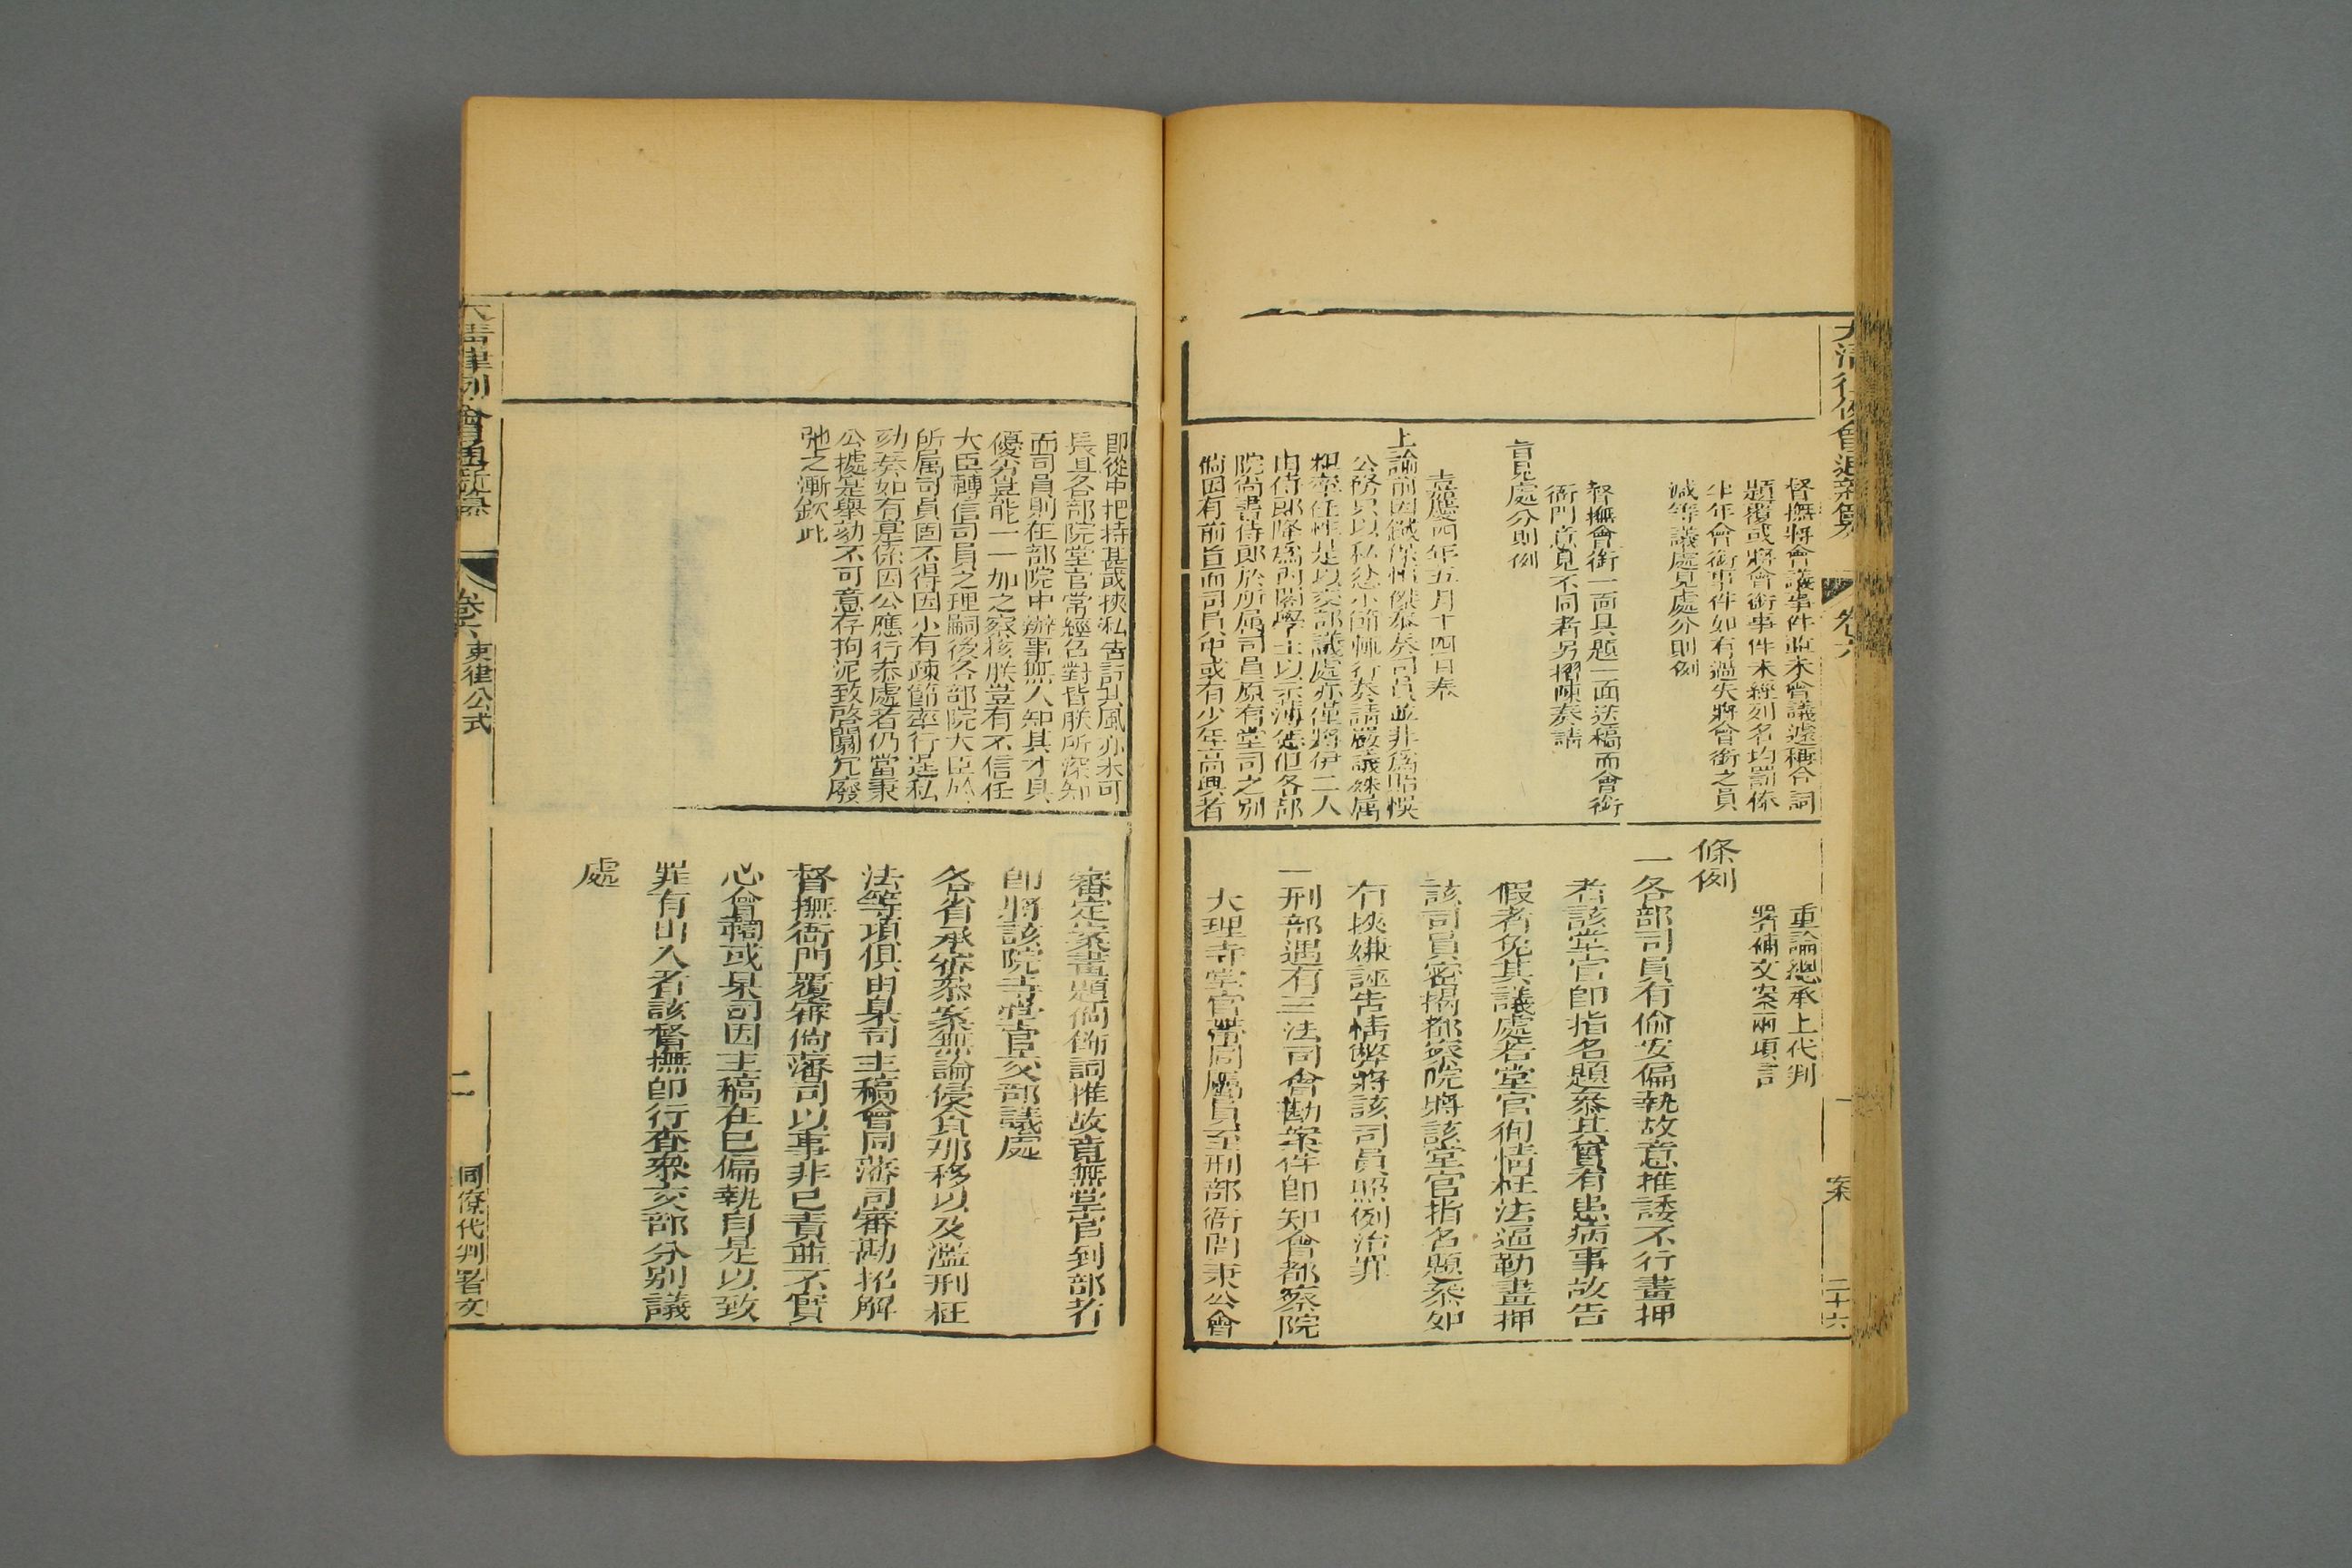 大清律例會通新纂
卷六
案
二十六
督撫將會議事件並未會議遽稱合詞
題覆或將會銜事件未經列名均罰俸
半年會銜事件如有過失將會銜之員
減等議處見處分則例
督撫會銜一面具題一面送稿而會銜
衙門意見不同者另摺陳奏請
旨見處分則例
嘉慶四年五月十四日奉
上諭前因
公務只以私忿小節輒行奏請嚴議殊屬
粗率任性是以交部議處亦僅將伊二人
由侍郎降為內閣學士以示薄懲但各部
院尚書侍郎於所屬司員原有堂司之別
倘因有前旨而司員中或有少年高興者
重論總承上代判
署補文案兩項言
條例
一各部司員有偷安偏執故意推諉不行畫押
者該堂官即指名題叅其實有患病事故告
假者免其議處若堂官徇情枉法逼勒畫押
該司員密揭都察院將該堂官指名題叅如
有挾嫌誣告情弊將該司員照例治罪
一刑部遇有三法司會勘案件即知會都察院
大理寺堂官帶同屬員至刑部衙門秉公會
即從中把持甚或挾私告訐其風亦未可
長且各部院堂官常經召對皆朕所深知
而司員則在部院中辦事無人知其才具
優劣豈能一一加之察核朕豈有不信任
大臣轉信司員之理嗣後各部院大臣於
所屬司員固不得因小有疎節率行逞私
劾奏如有寔係因公應行叅處者仍當秉
公據寔舉劾不可意存拘泥致啓闒冗廢
弛之漸欽此
審定案畫題倘飾詞推故竟無堂官到部者
即將該院寺堂官交部議處
各省承審叅案無論侵貪那移以及濫刑枉
法等項俱由臬司主稿會同藩司審勘招解
督撫衙門覆審倘藩司以事非已責並不實
心會鞫或臬司因主稿在已偏執自是以致
罪有出入者該督撫即行查叅交部分別議
處
大清律例會通新纂
卷六
吏律公式
二
同僚代判署文